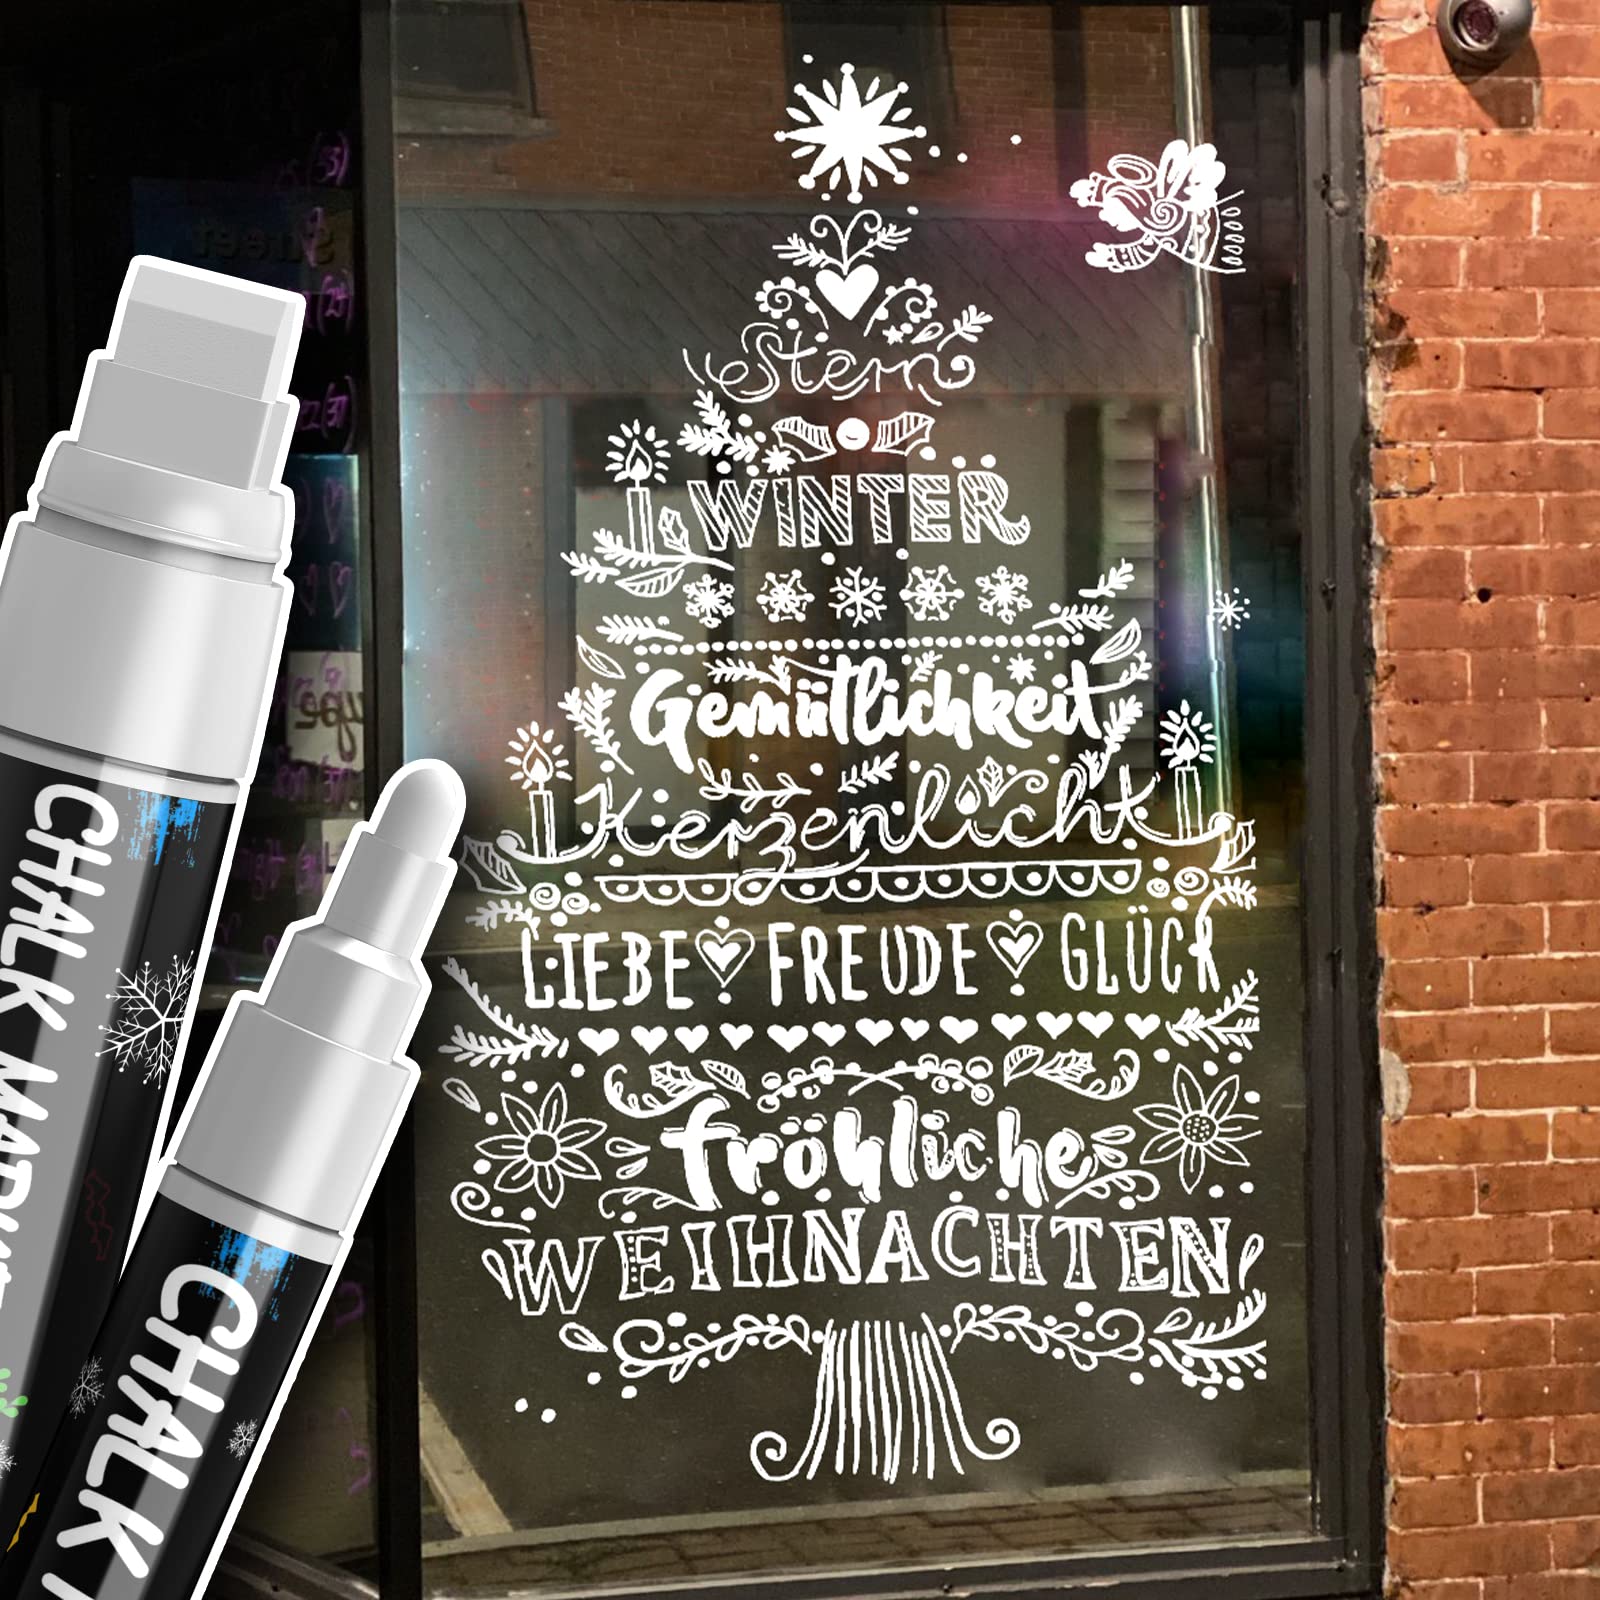 Stern
WINTER
Gemütlichkeit
Kerzenlicht
LIEBE FREUDE GLÜCK
fröhliche
WEIHNACHTEN
CHALK
CHALK